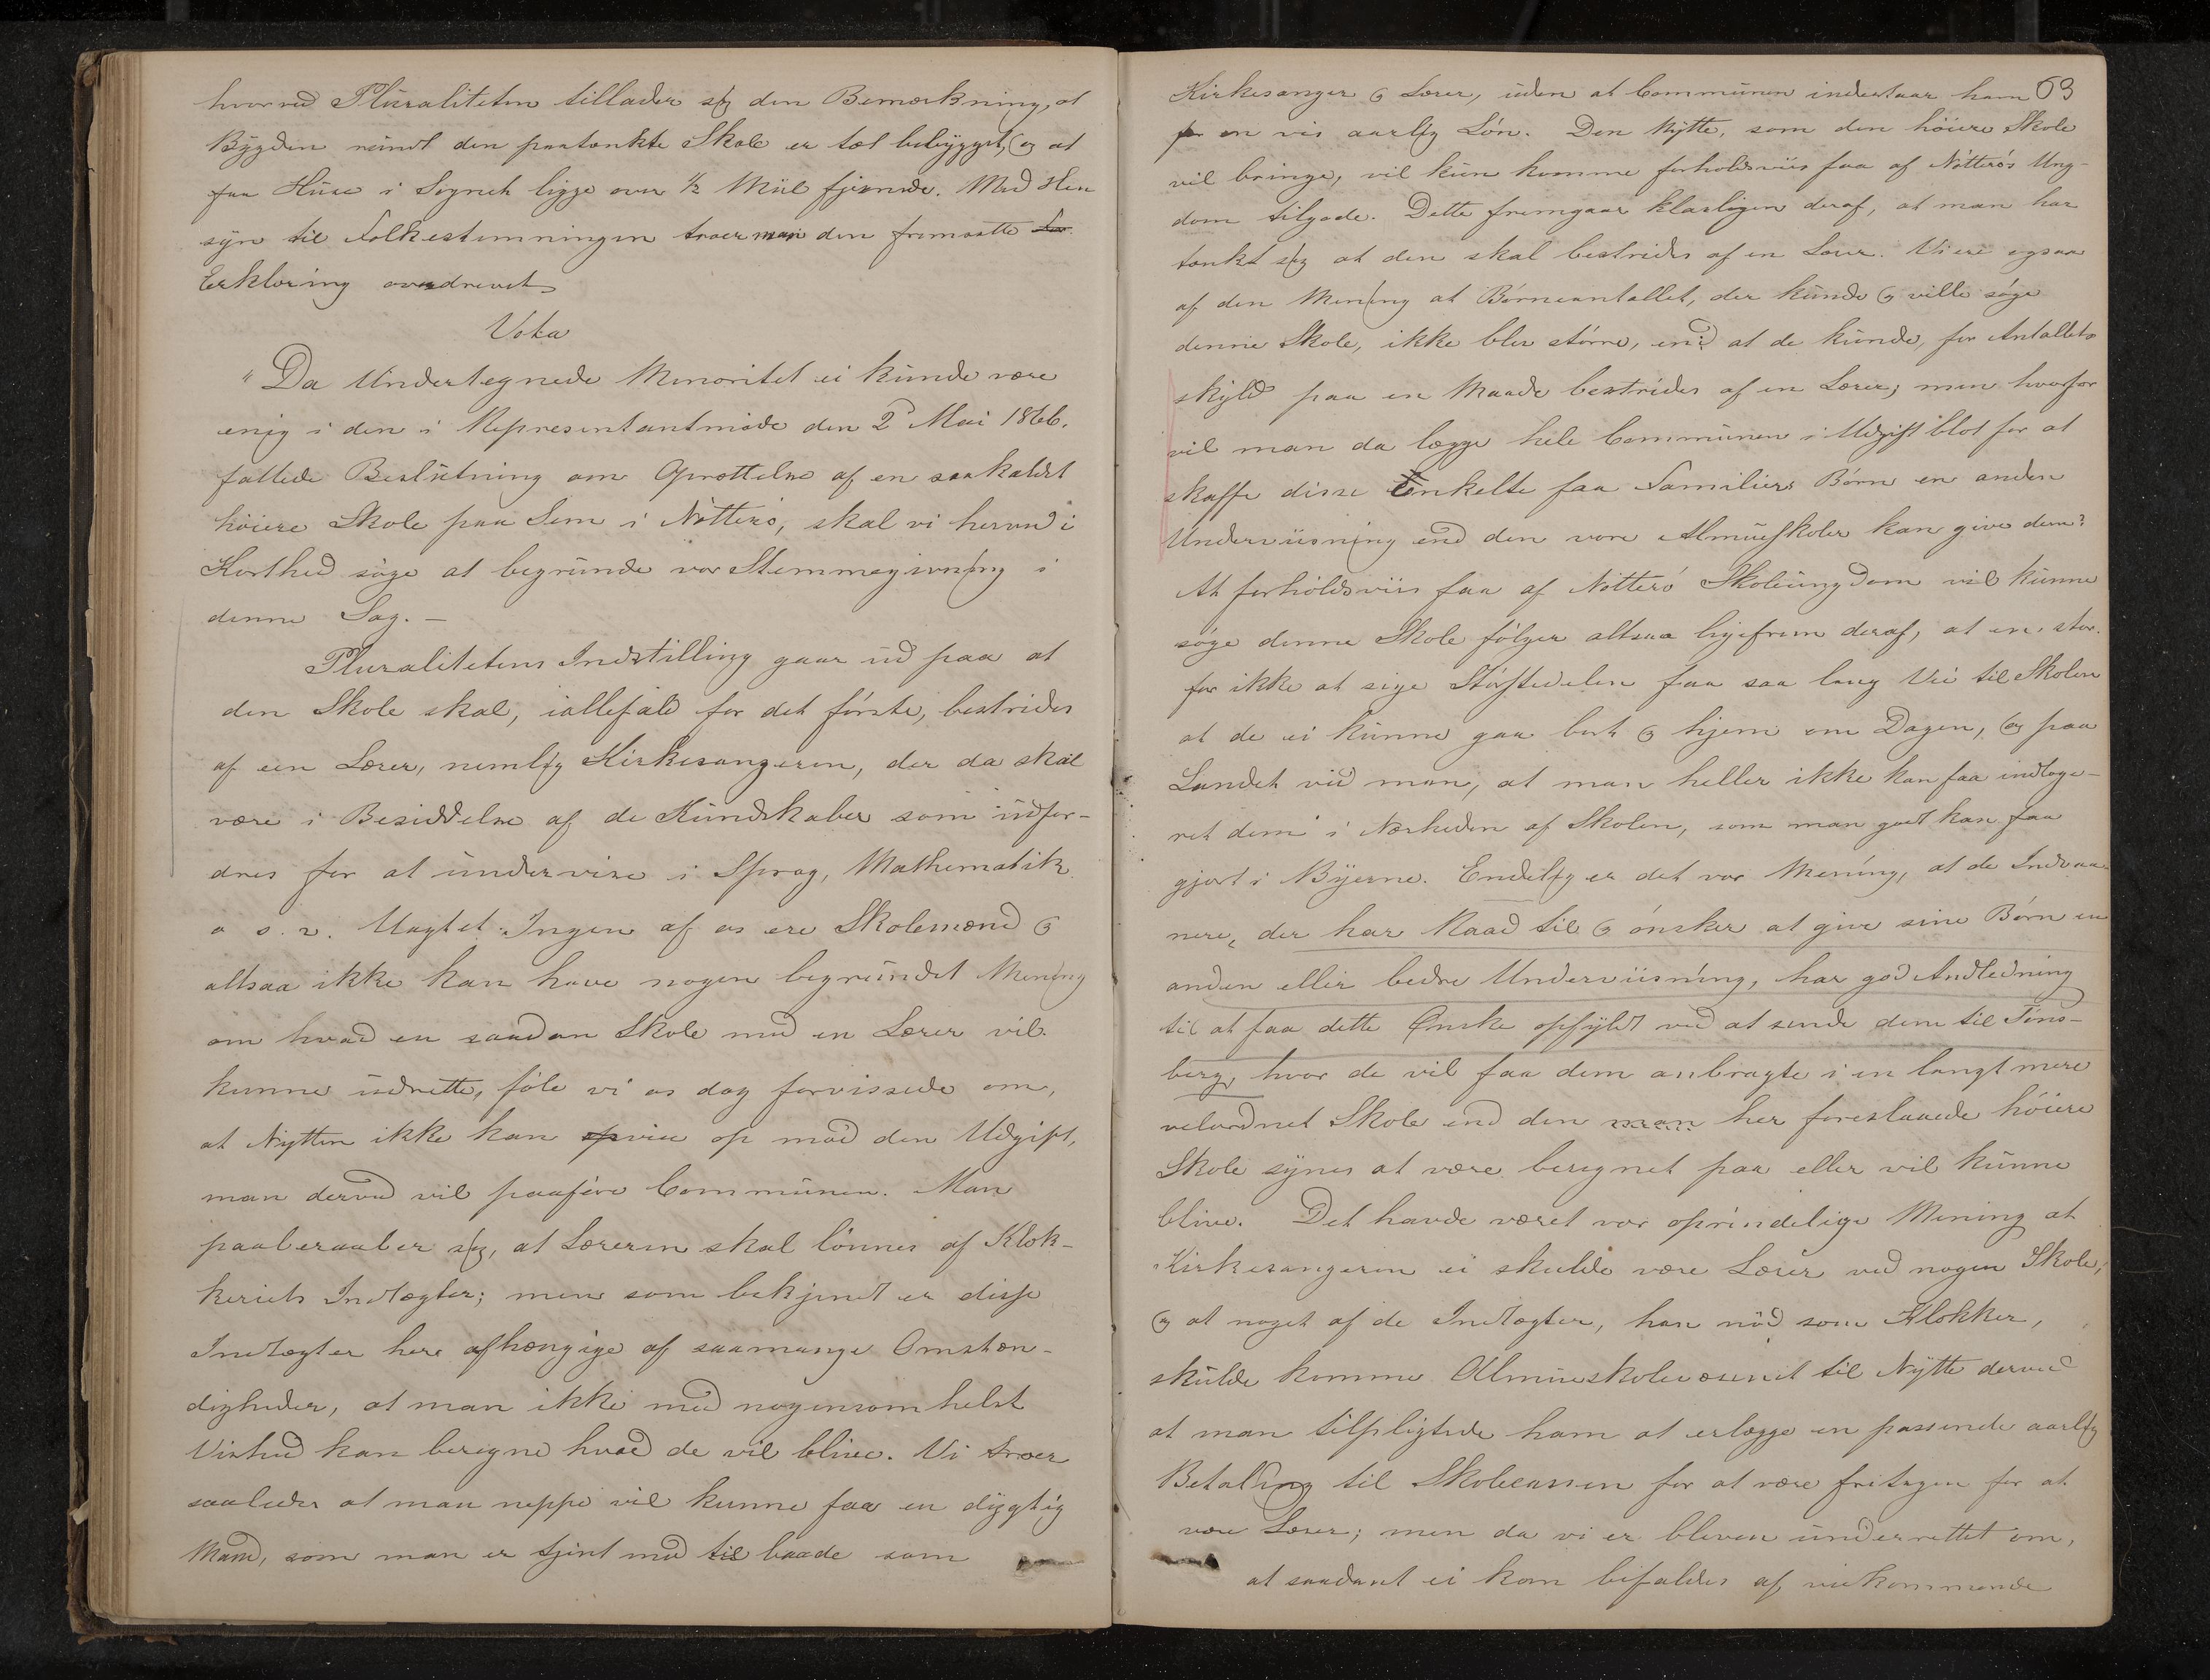 hvorved Pluraliteten tillader sig den Bemærkning, at
Bygden rundt den paatænkte Skole er tæt bebygget, og at
faa Huse i Sognet ligge over 1/2 Miil fjernede. Med Hen
syn til Folkestemningen troer man den fremsatte
Erklæring overdrevet
Vota
"Da Undertegnede Menoritet ei kunde være
enig i den i Representantmøde den 2d Mai 1866.
fattede Beslutning om Oprettelse af en saakaldet
høiere Skole paa Sem i Nøtterø, skal vi herved i
Korthed søge at begrunde vor Stemmegivning i
denne Sag. —
Pluralitetens Indstilling gaar ud paa at
den Skole skal, iallefald for det første, bestrides
af een Lærer, nemlig Kirkesangeren, der da skal
være i Besiddelse af de Kundskaber som udfor-
dres for at undervise i Sprog, Mathematik
o s. v. Uagtet Ingen af os ere Skolemænd og
altsaa ikke kan have nogen begrundet Mening
om hvad en saadan Skole med en Lærer vil
kunne udrette, føle vi os dog forvissede om,
at Nytten ikke kan veie op mod den Udgift,
man derved vil paaføre Communen. Man
paaberaaber sig, at Læreren skal lønnes af Klok-
keriets Indtægter; men som bekjendt er disse
Indtægter here afhængige af saamange Omstæn-
digheder, at man ikke med nogensomhelst
Vished kan beregne hvad de vil blive. Vi troer
saaledes at man neppe vil kunne faa en dygtig
Mand, som man er tjent med til baade som
63
Kirkesanger og Lærer, uden at Communen indestaar ham
for en vis aarlig Løn. Den Nytte, som den høiere Skole
vil bringe, vil kun komme forholdsviis faa af Nøtterøs Ung-
dom tilgode. Dette fremgaar klarligen deraf, at man har
tænkt sig at den skal bestrides af en Lærer. Vi ere ogsaa
af den Mening at Børneantallet, der kunde og ville søge
denne Skole, ikke blev større, end at de kunde, for Antallets
skyld paa en Maade bestrides af en Lærer; men hvorfor
vil man da lægge hele Communen i Udgift blot for at
skaffe disse Enkelte faa Familiers Børn en anden
Underviisning end den vore Almueskoler kan give dem?
At forholdsviis faa af Nøtterø Skoleungdom vil kunne
søge denne Skole følger altsaa ligefrem deraf, at en stor
for ikke at sige Størstedelen faa saa lang Vei til Skolen
at de ei kunne gaa bort og hjem om Dagen, og paa
Landet veed man, at man heller ikke kan faa indloge-
ret dem i Nærheden af Skolen, som man godt kan faa
gjort i Byerne. Endelig er det vor Mening, at de Indvaa-
nere, der har Raad til og ønsker at give sine Børn en
anden eller bedre Underviisning, har god Andledning
til at faa dette Ønske opfyldt ved at sende dem til Tøns-
berg, hvor de vil faa dem anbragte i en langt mere
velordnet Skole end den man her foreslaaede høiere
Skole synes at være beregnet paa eller vil kunne
blive. Det havde været vor oprindelige Mening at
Kirkesangeren ei skulde være Lærer ved nogen Skole;
og at noget af de Indtægter, han nød som Klokker,
skulde komme Almueskolevæsenet til Nytte derved
at man tilpligtede ham at erlægge en passende aarlig
Betaling til Skolecassen for at være fritagen for at
være Lærer; men da vi er bleven underrettet om,
at saadant ei kan bifaldes af vedkommende